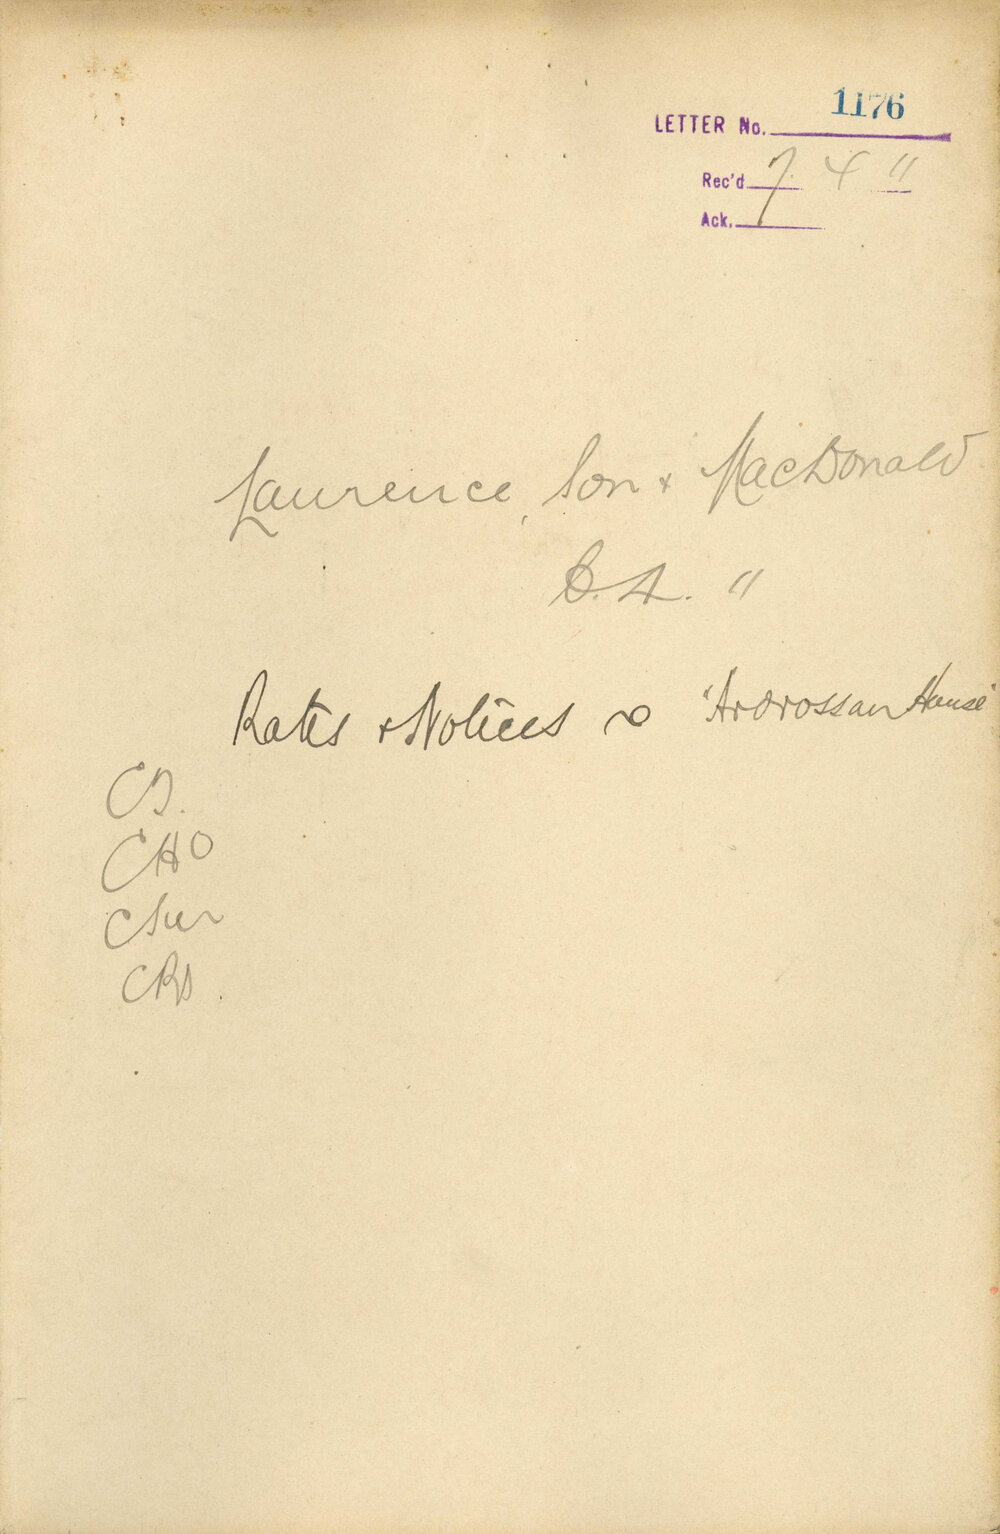 LETTER No. 1176
Rec'd 7 4 11
Ack.
Laurence, Son & MacDonald
E.A. "
Rates & Notices 'Ardrossan House'
CHO
CSur